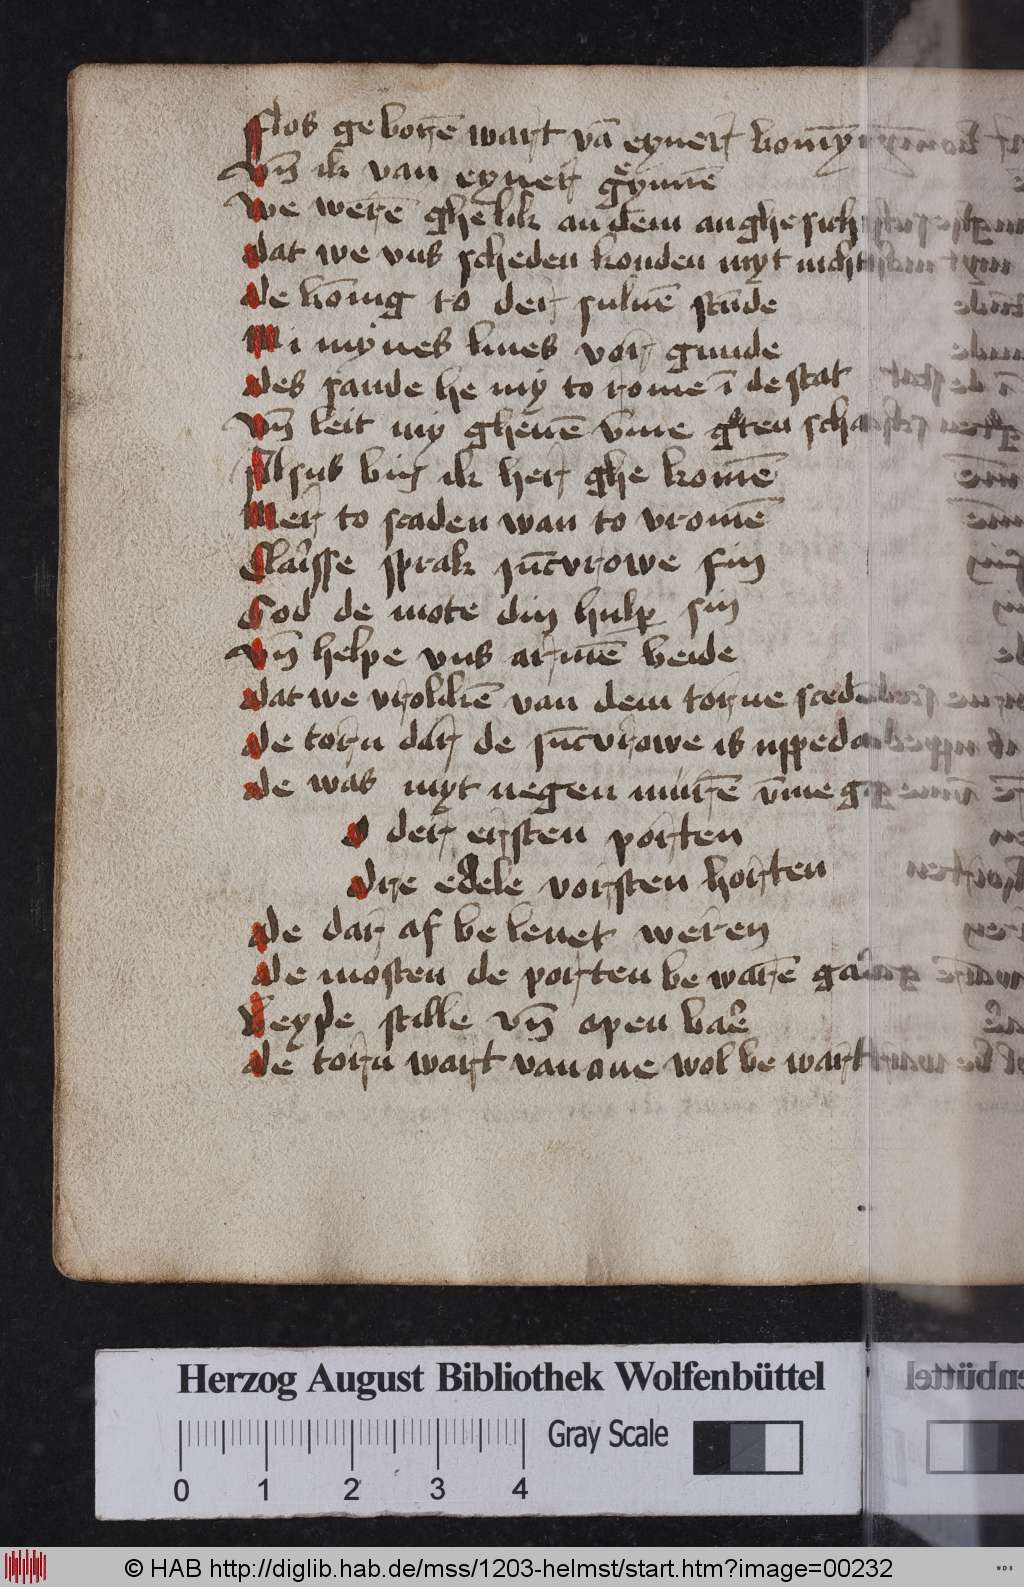 Flos geborē wart vā eyner
vn̄ ik van eyner
we werē ghelik an dem anghesich
dat we vns scheden konden myt nicht
de kōnig to der suluē stūde
Mi mynes liues vor gunde
des sande he my to rome ī de stat
vn̄ leit my gheuē vm̄e
Alsus bin ik her ghe komē
Mer to scaden wan to vromē
Claisse sprak iūcvrowe fin
God de mote din hulp sin
vn̄ helpe vns armē beide
dat we vrolikē van dem torne
de torn dar de iūcvrowe is uppe
de was myt negen murē vm̄e
der ersten porten
dre edele vorsten horten
de dar af be lenet weren
de mosten de porten be warē
Beyde stille vn̄ apen baer
de torn wart van one wol be wart
Herzog August Bibliothek Wolfenbüttel
Gray Scale
0 1 2 3 4
© HAB http://diglib.hab.de/mss/1203-helmst/start.htm?image=00232